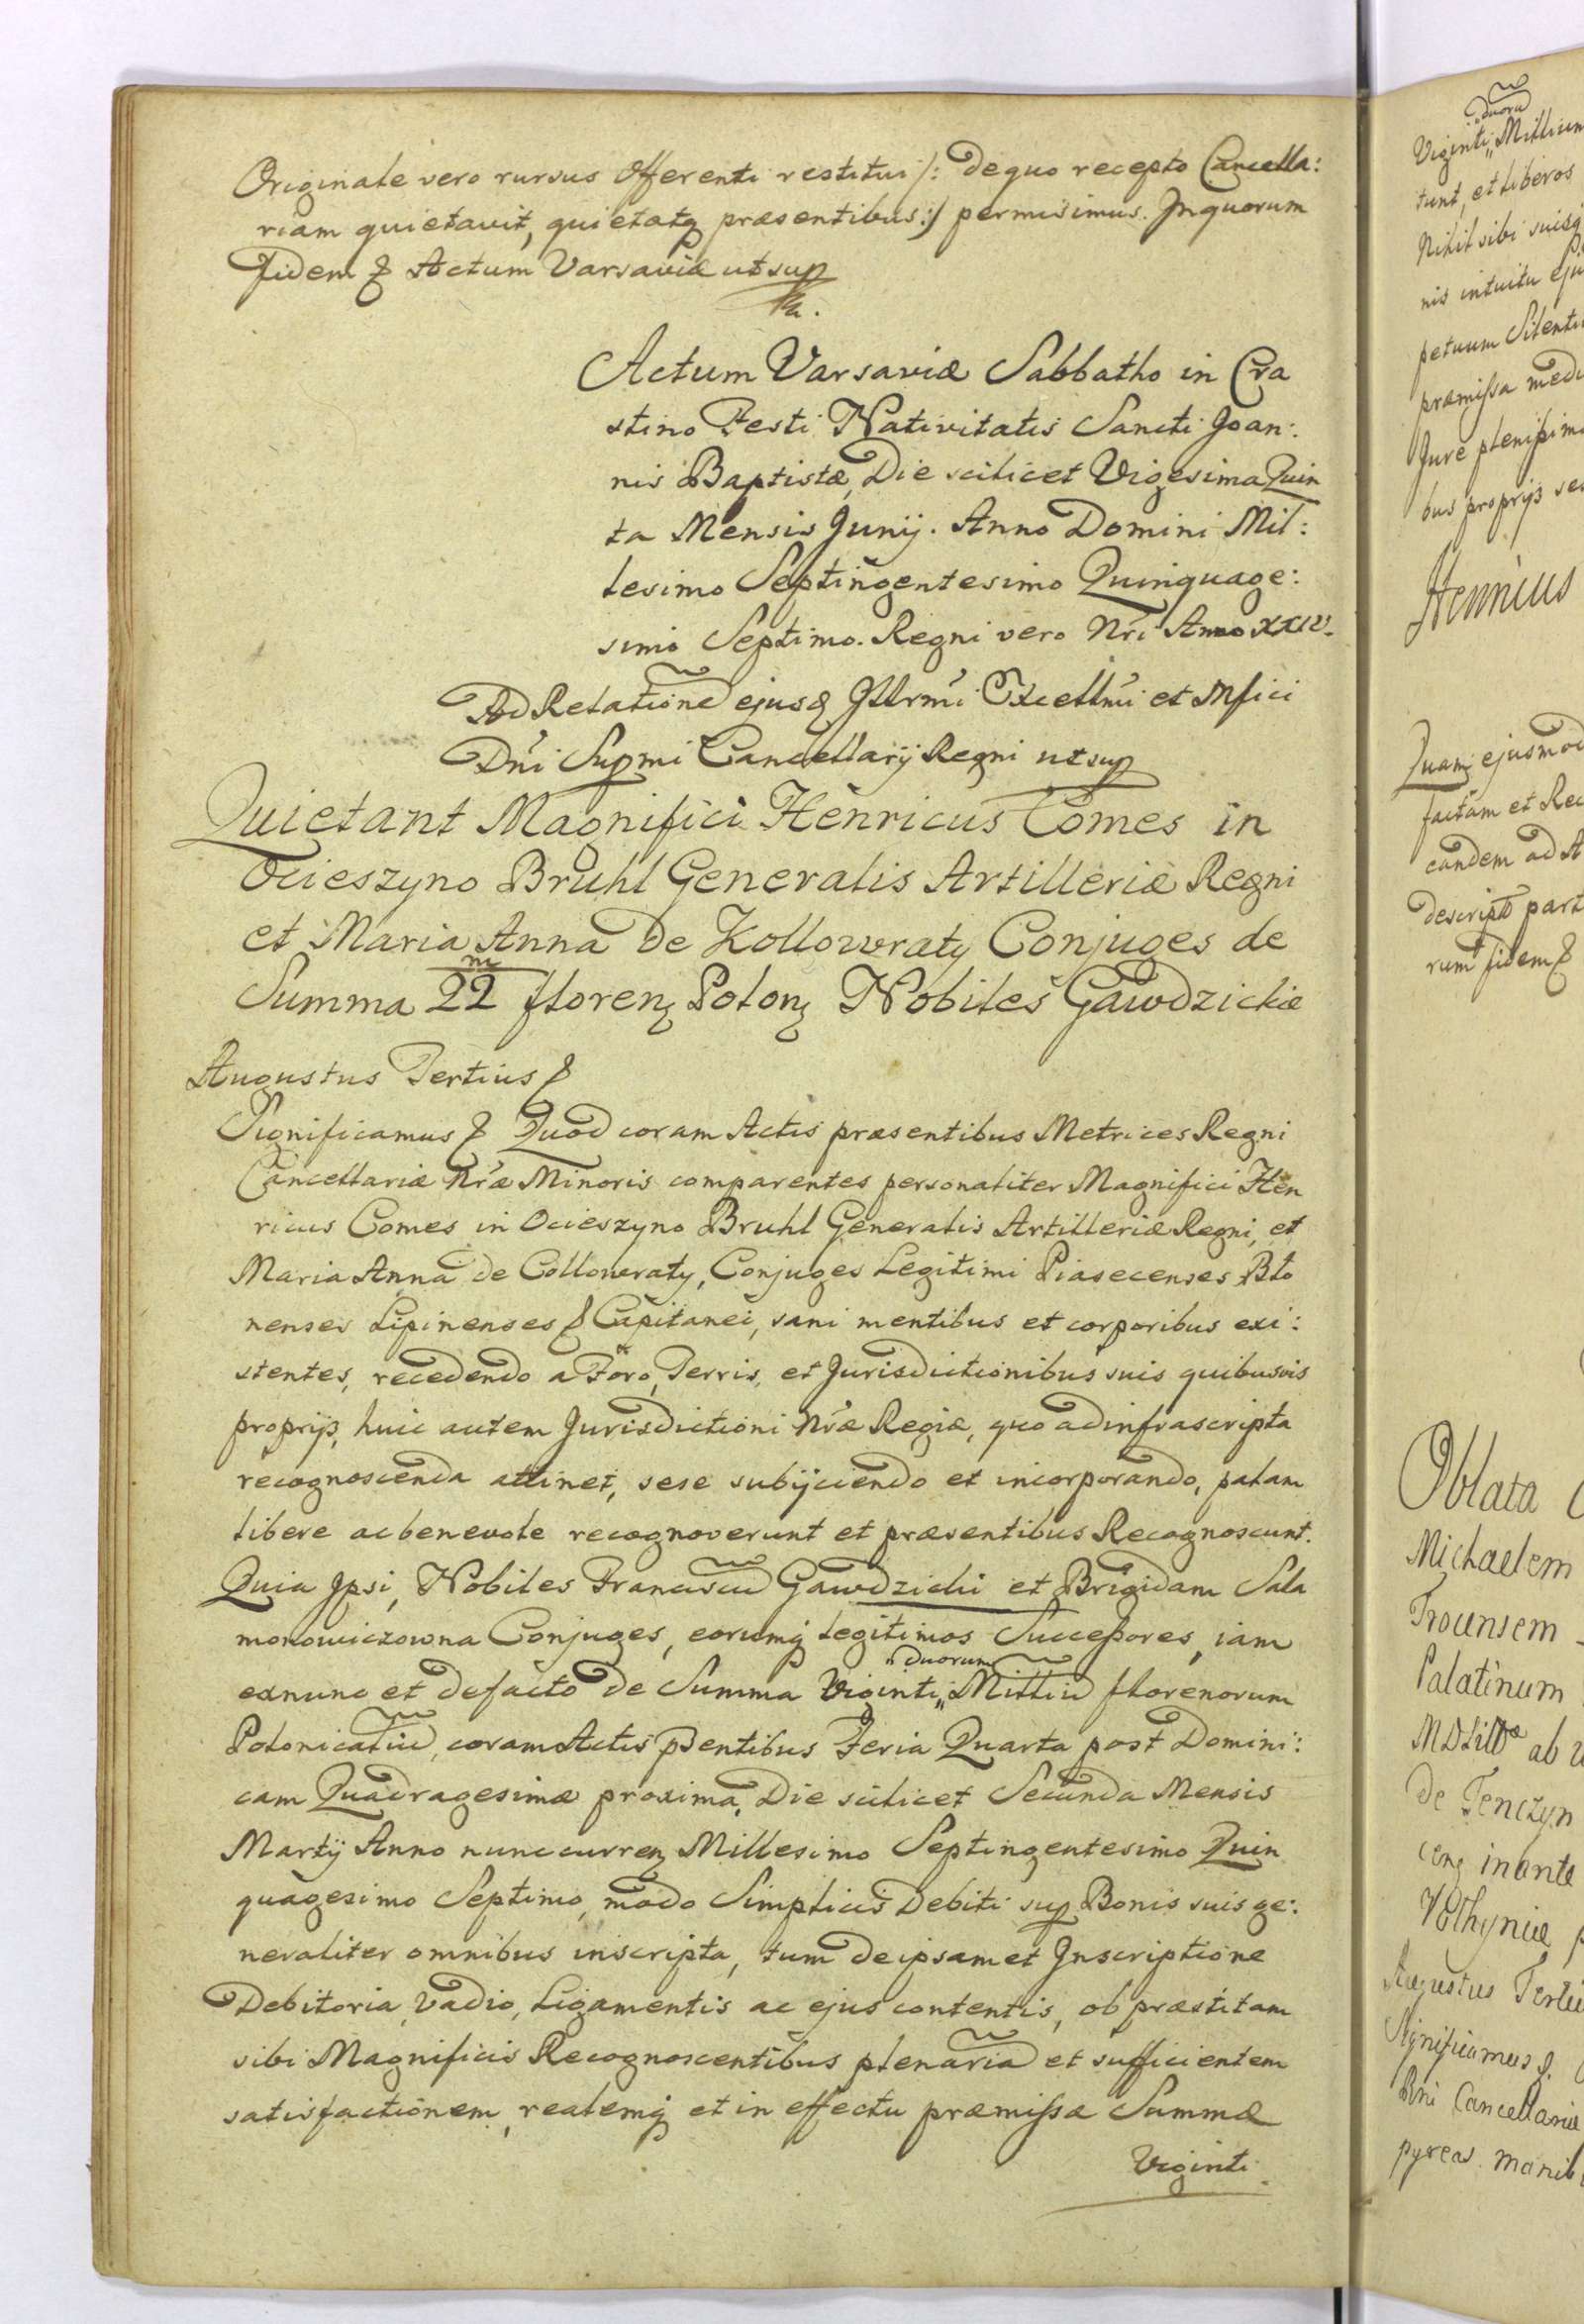 Originale vero rursus Offerenti restitui /: de quo recepto Cancella:
riam quietavit, quietatq præsentibus :/ permisimus. In quorum
fidem & Actum Varsaviæ ut sup
Actum Varsaviæ Sabbatho in Cra
stino Festi Nativitatis Sancti Joan:
nis Baptistæ, Die scilicet Vigesima Quin
ta Mensis Junij. Anno Domini Mil:
lesimo Septingentesimo Quinquage:
simo Septimo. Regni vero Nri Anno XXIV.
Ad Relatione ejusd Illrmi Excellmi et Mfici
Dni Supmi Cancellarij Regni ut sup
Quietant Magnifici Henricus Comes in
Ocieszyno Bruhl Generalis Artilleriæ Regni
et Maria Anna de Kollowraty Conjuges de
Summa 22 m floren Polon Nobiles Gawdzickie
Augustus Tertius &
Significamus & Quod coram Actis præsentibus Metrices Regni
Cancellariæ Nræ Minoris comparentes personaliter Magnifici Hen
ricus Comes in Ocieszyno Bruhl Generalis Artilleriæ Regni, et
Maria Anna de Collowraty, Conjuges Legitimi Piasecenses Blo
nenses Lipinenses & Capitanei, sani mentibus et corporibus exi:
stentes, recedendo a Foro, Terris, et Jurisdictionibus suis quibusvis
proprijs, huic autem Jurisdictioni Nræ Regiæ, quo ad infrascripta
recognoscenda attinet, sese subijciendo et incorporando, palam
libere ac benevole recognoverunt et præsentibus Recognoscunt.
Quia Ipsi, Nobiles Franciscu Gawdzicki et Brigidam Sala
monowiczowna Conjuges, eorumq legitimos Successores, iam
ex nunc et de facto de Summa Viginti „ duorum Milliu florenorum
Polonicaliu, coram Actis psentibus Feria Quarta post Domini:
cam Quadragesimæ proxima, Die scilicet Secunda Mensis
Martij Anno nunc curren Millesimo Septingentesimo Quin
quagesimo Septimo, modo Simplicis Debiti sup Bonis suis ge:
neraliter omnibus inscripta, tum de ipsamet Inscriptione
Debitoria, Vadio, Ligamentis ac ejus contentis, ob præstitam
sibi Magnificis Recognoscentibus plenaria et sufficientem
satisfactionem, realemq et in effectu præmissæ Summæ
Viginti
duoru
Viginti „ Millium
tunt, et liberos
Nihil sibi suisq
nis intuitu eju
petuum Silenti
præmissa medi
Jure plenissim
bus proprijs se
Henricus
Quam ejusmod
factam et Rec
eandem ad A
descripto part
rum fidem &
Oblata
Michaelem
Palatinum
ab
de Tenczyn
inante
Volhyniæ
Augustus Tertiu
Significamus &
Rni Cancellariæ
manib